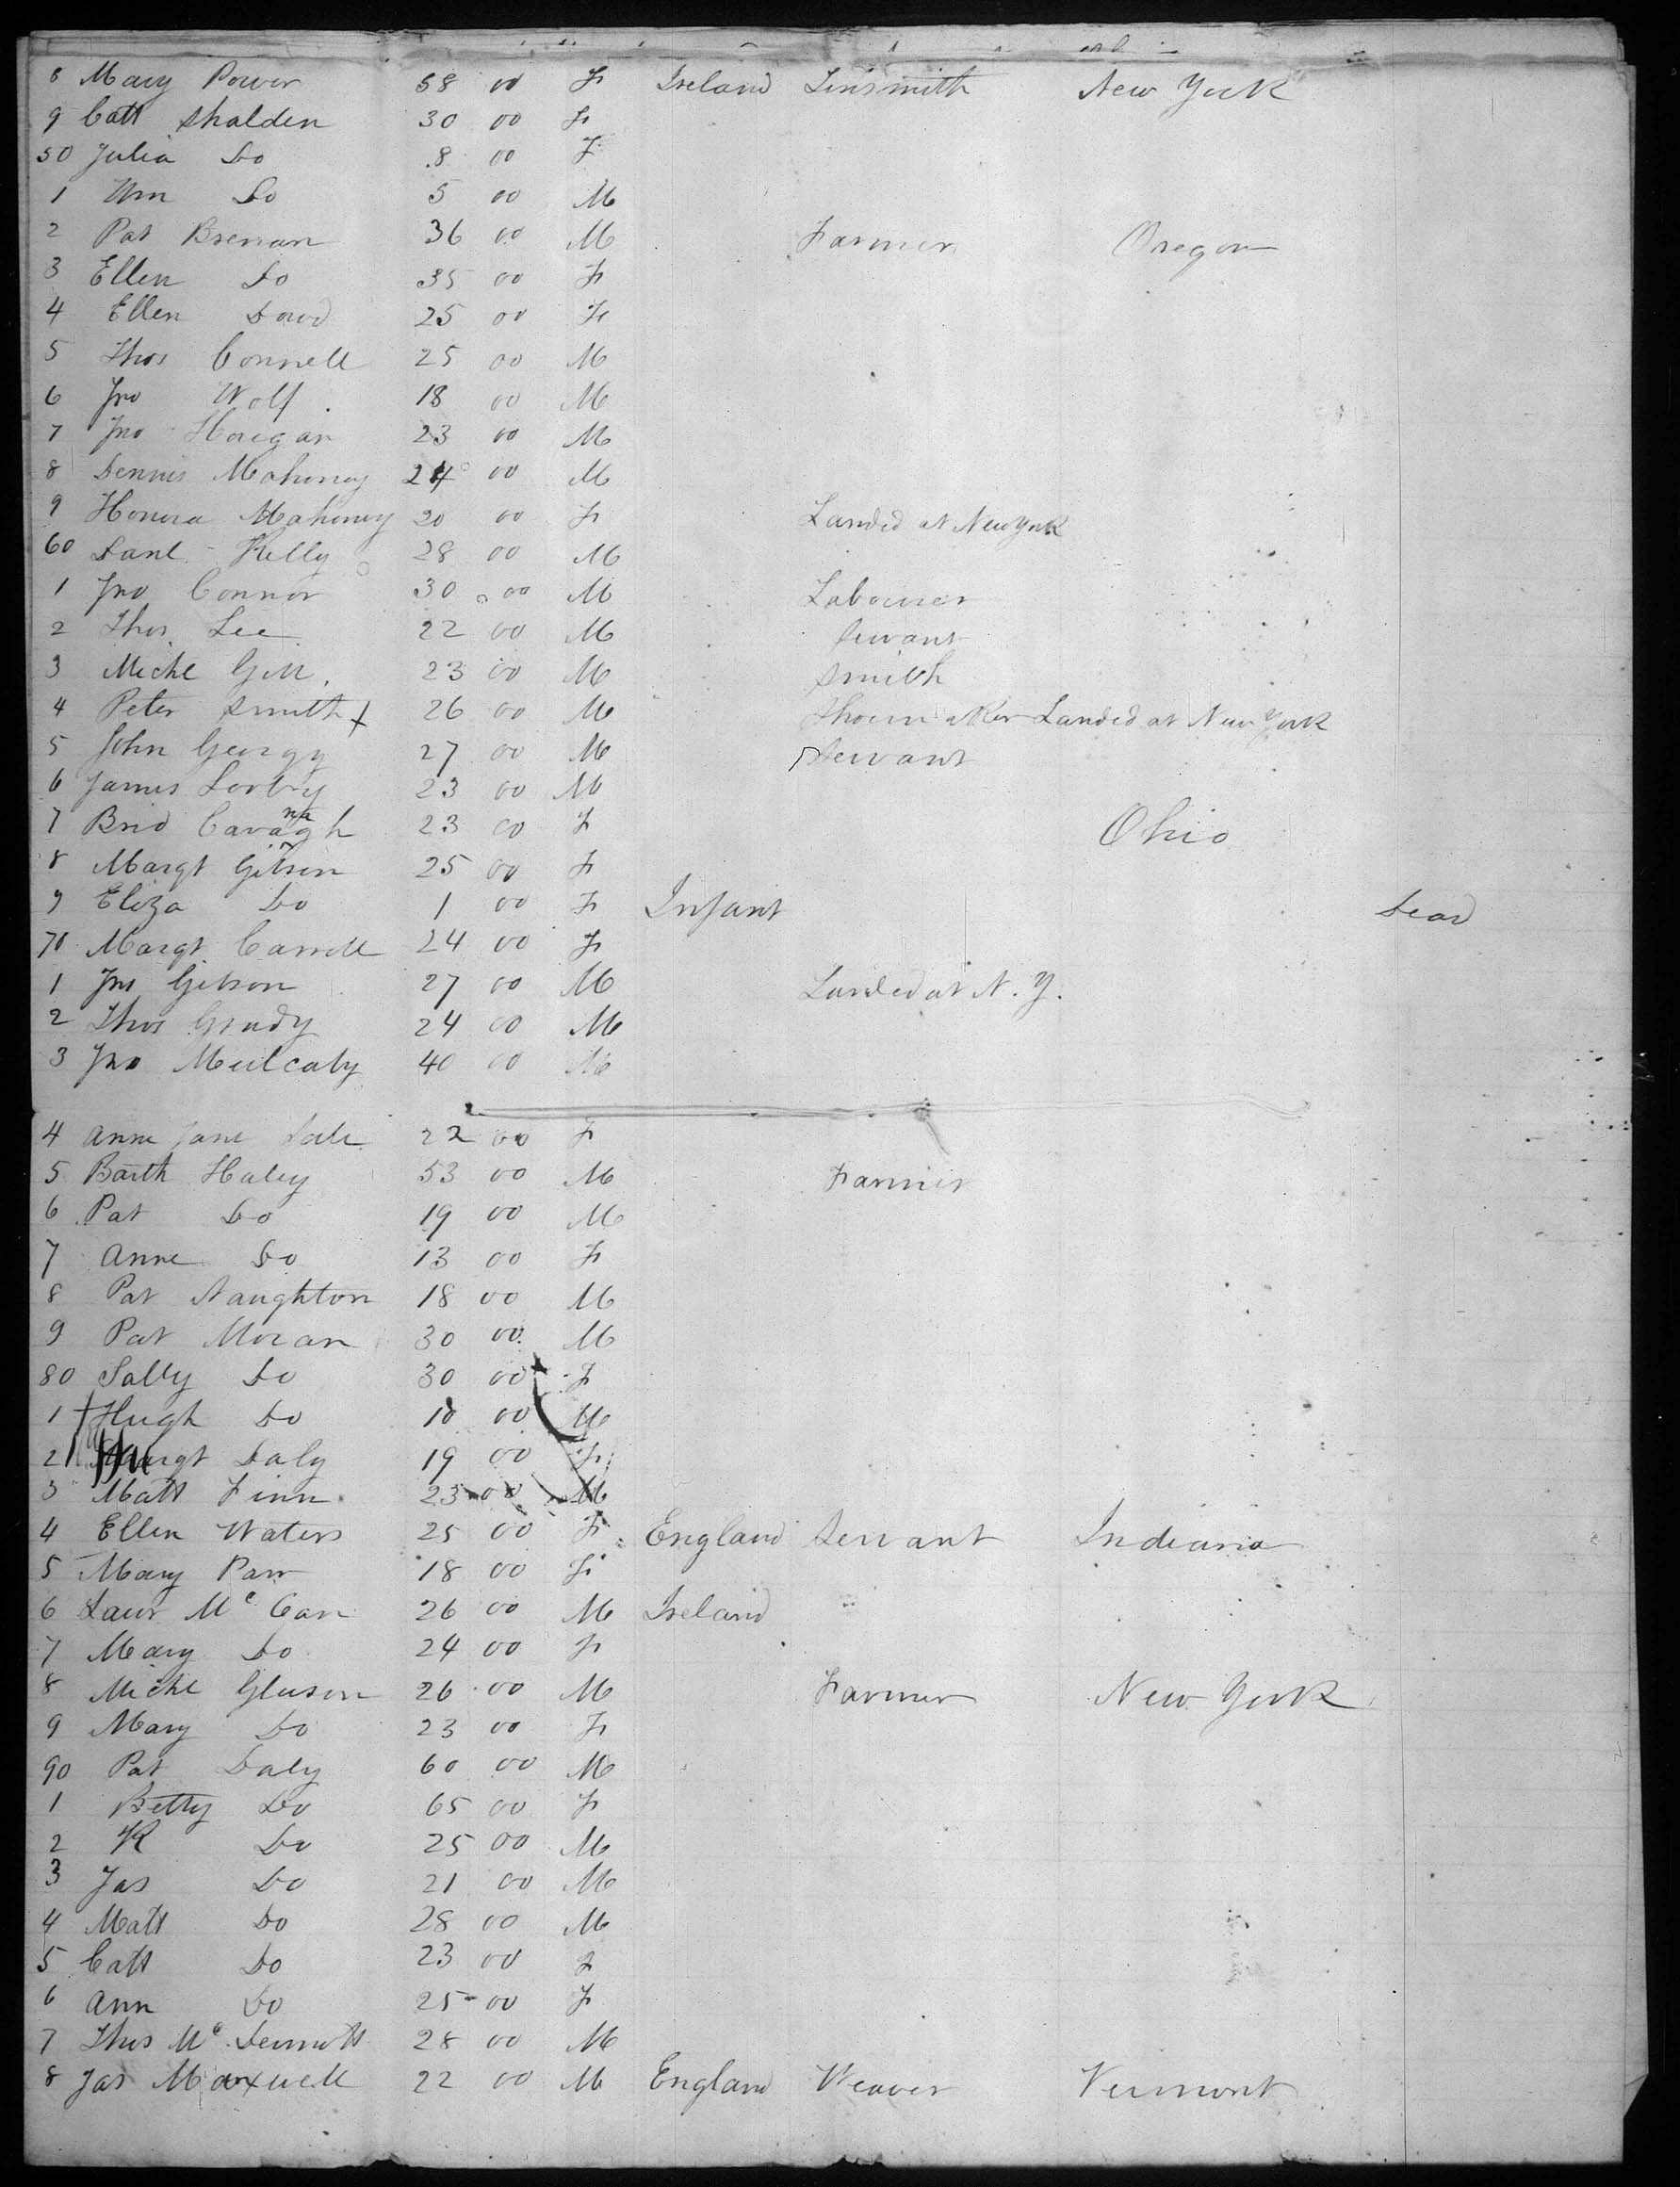 8 Mary Power 58 00 F Ireland Tinsmith New York
9 Cath Shalden 30 00 F
50 Julia Do 8 00 F
1 Wm Do 5 00 M
2 Pat Brenan 36 00 M Farmer Oregon
3 Ellen Do 35 00 F
4 Ellen Dowd 25 00 F
5 Thos Connell 25 00 M
6 Jno Wolf 18 00 M
7 Jno Horegan 23 00 M
8 Dennis Mahoney 24 00 M
9 Honora Mahoney 20 00 F Landed at New York
60 Danl Kelly 28 00 M
1 Jno Connor 30 00 M Labourer
2 Thos Lee 22 00 M Servant
3 Michl Gill 23 00 M Smith
4 Peter Smith 26 00 M Shoemaker Landed at New York
5 John Georgy 27 00 M Servant
6 James 23 00 M
7 Brid Cavanagh 23 00 F Ohio
8 Margt Gibson 25 00 F
9 Eliza Do 1 00 F Infant Dead
70 Margt Carroll 24 00 F
1 Jno Gibson 27 00 M Landed at N. Y.
2 Thos Grady 24 00 M
3 Jno Mulcahy 40 00 M
4 Anne Jane 22 00 F
5 Barth Haley 53 00 M Farmer
6 Pat Do 19 00 M
7 Anne Do 13 00 F
8 Pat Naughton 18 00 M
9 Pat Moran 30 00 M
80 Sally Do 30 00 F
1 Hugh Do 10 00 M
2 Margt Daly 19 00 F
3 Matt Finn 23 00 M
4 Ellen Waters 25 00 F England Servant Indiana
5 Mary Parr 18 00 F
6 Laur Mc Can 26 00 M Ireland
7 Mary Do 24 00 F
8 Michl Gleeson 26 00 M Farmer New York
9 Mary Do 23 00 F
90 Pat Daly 60 00 M
1 Betty Do 65 00 F
2 K Do 25 00 M
3 Jas Do 21 00 M
4 Matt Do 28 00 M
5 Cath Do 23 00 F
6 Ann Do 25 00 F
7 Thos Mc Dermott 28 00 M
8 Jas Maxwell 22 00 M England Weaver Vermont